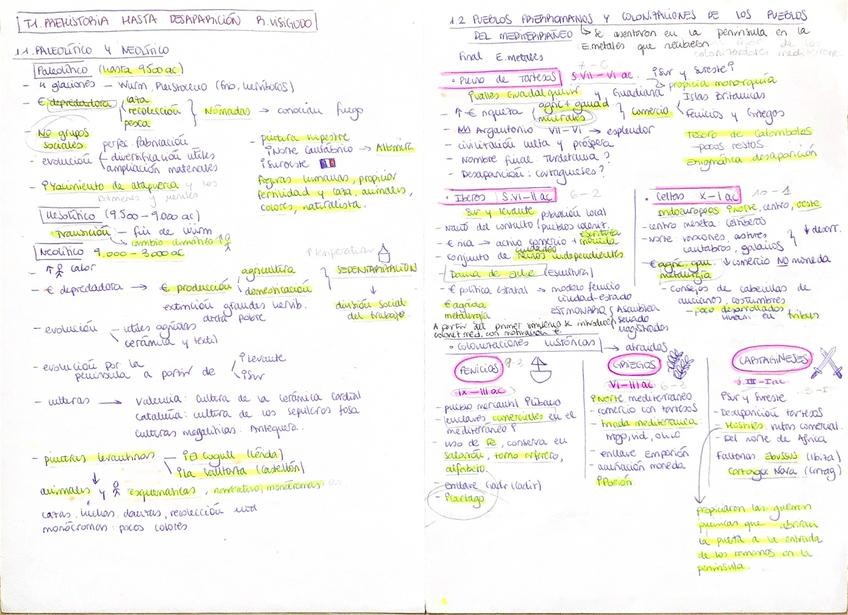 T.1. PREHISTORIA HASTA DESAPARICIÓN R. VISIGODO
1.1. PALEOLÍTICO Y NEOLÍTICO
Paleolítico (hasta 9500 ac)
- 4 glaciares - Würm, Pleistoceno (frío, herbívoros)
- € depredadora
caza
recolección
pesca
Nómadas → conocían fuego
- No grupos sociales
- evolución
perfec. fabricación
diversificación útiles
ampliación materiales
- pintura rupestre
Norte cantábrico → Altamira
Suroeste
figuras humanas, propiciar
fertilidad y caza, animales,
colores, naturalista.
- Yacimiento de atapuerca y los
Mesolítico (9500 - 9000 ac)
Transición - fin de würm
cambio climático
Neolítico 9.000 - 3.000 ac
- ↑ calor
- € depredadora → € producción
agricultura
domesticación
SEDENTARIZACIÓN
↓
división social
del trabajo
extinción grandes herbív.
dieta pobre
- evolución
útiles agrícolas
cerámica y textil
- evolución por la
península a partir de
levante
sur
- culturas → Valencia: cultura de la cerámica cardial
Cataluña: cultura de los sepulcros fosa
culturas megalíticas: Antequera.
- pinturas levantinas
El Cogull (Lérida)
la Valltorta (Castellón)
animales y esquemáticas, narrativo, monócromas
caza, luchas, danzas, recolección
monócromas: pocos colores.
1.2 PUEBLOS PRERROMANOS Y COLONIZACIONES DE LOS PUEBLOS
DEL MEDITERRÁNEO
se asentaron en la península en la
E. metales que recibieron
final E. metales
• Reino de Tartesos S. VII - VI ac
Sur y sureste
propia monarquía
Valles Guadalquivir y Guadiana
- ↑ € riqueza
agric + ganad
minerales
comercio
Islas Britanicas
Fenicios y Griegos
- Argantonio VII - VI → esplendor
- civilización culta y próspera
- Nombre final Turdetania?
- Desaparición: cartagineses?
Tesoro de Calambolos
- pocos restos
Enigmática desaparición
• Iberos S. VI - II ac 6-2
Sur y levante población local
- conjunto de reinos independientes
- Dama de elche (escultura)
- € política estatal → modelo fenicio
ciudad-estado
€ agrícola
metalurgia
asamblea
senado
magistrados
Celtas X - I ac 10-1
indoeuropeos norte, centro, oeste
- centro meseta celtíberos
- norte vascones, astures
cantabros, galaicos
↓ desarr.
- € agric, gan ↓ comercio NO moneda
metalurgia
- consejos de cabecillas de
ancianos, costumbres
- poco desarrollados
vivían en tribus
A partir del primer
colonizaciones históricas → atraídos
FENICIOS 9-3
IX - III ac
- pueblo mercantil Líbano
- enclaves comerciales en el
mediterráneo
- uso de Fe, conserva en
salazón, torno orfebre,
alfabeto.
- enclave Gadir (Cadiz)
GRIEGOS
VI - III ac 6-3
Norte mediterráneo
- comercio con tartesos
- triada mediterránea
trigo, vid, olivo
- enclave Emporion
- acuñación moneda
CARTAGINESES
S. III - I ac
Sur y sureste
- Desaparición tartesos
- Hostiles rutas comercial.
- Del norte de África
Factorías Ebussus (Ibiza)
Cartago Nova (Cartag)
propiciaron las guerras
púnicas que abrirían
la puerta a la entrada
de los romanos en la
península.